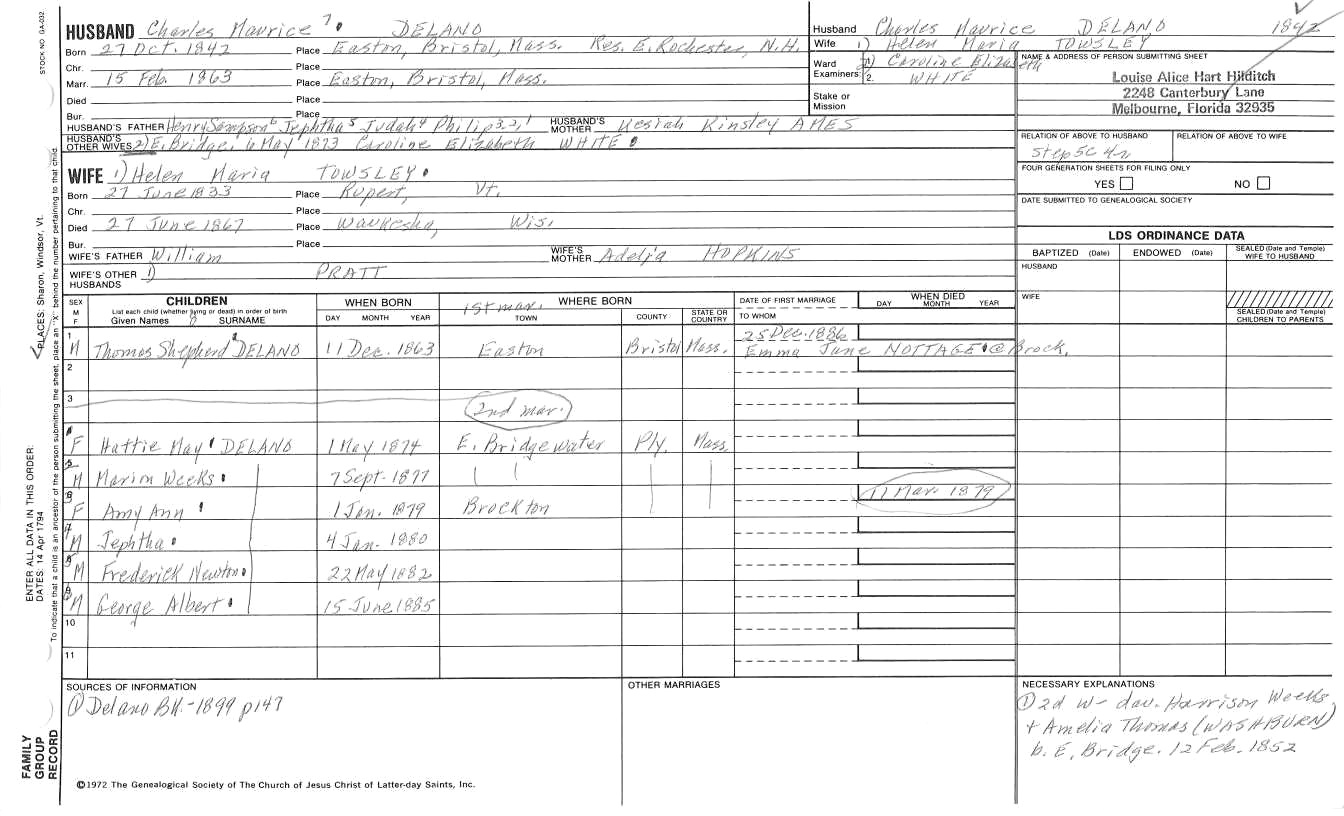 STOCK NO. GA-002
HUSBAND Charles Maurice 7. DELANO
Born 27 Oct. 1842 Place Easton, Bristol, Mass. Res. E. Rochester, N.H.
Chr. Place
Marr. 15 Feb. 1863 Place Easton, Bristol, Mass.
Died Place
Bur. Place
HUSBAND'S FATHER Henry Sampson6 Jephtha5 Judah4 Philip3,2,1 HUSBAND'S MOTHER Kesiah Kinsley AMES
HUSBAND'S OTHER WIVES 2) E. Bridge, 6 May 1873 Caroline Elizabeth WHITE
WIFE 1) Helen Maria TOWSLEY
Born 27 June 1833 Place Rupert, Vt.
Chr. Place
Died 27 June 1867 Place Waukesha, Wis.
Bur. Place
WIFE'S FATHER William WIFE'S MOTHER Adelia HOPKINS
WIFE'S OTHER HUSBANDS 1) PRATT
Husband Charles Maurice DELANO 1842
Wife 1) Helen Maria TOWSLEY
Ward 1. 2) Caroline Elizabeth
Examiners: 2. WHITE
Stake or Mission
NAME & ADDRESS OF PERSON SUBMITTING SHEET
Louise Alice Hart Hilditch
2248 Canterbury Lane
Melbourne, Florida 32935
RELATION OF ABOVE TO HUSBAND RELATION OF ABOVE TO WIFE
Step5C4r
FOUR GENERATION SHEETS FOR FILING ONLY
YES NO
DATE SUBMITTED TO GENEALOGICAL SOCIETY
LDS ORDINANCE DATA
BAPTIZED (Date) ENDOWED (Date) SEALED (Date and Temple) WIFE TO HUSBAND
HUSBAND
WIFE
SEALED (Date and Temple) CHILDREN TO PARENTS
SEX M F
CHILDREN
List each child (whether living or dead) in order of birth
Given Names 8 SURNAME
WHEN BORN
DAY MONTH YEAR
1st mar. WHERE BORN
TOWN COUNTY STATE OR COUNTRY
DATE OF FIRST MARRIAGE
TO WHOM
WHEN DIED
DAY MONTH YEAR
1 M Thomas Shepherd DELANO 11 Dec. 1863 Easton Bristol Mass. 25 Dec. 1886
Emma Jane NOTTAGE @ Brock.
2
3 2nd mar.
F Hattie May DELANO 1 May 1874 E. Bridgewater Ply. Mass.
M Marion Weeks 7 Sept. 1877
F Amy Ann 1 Jan. 1879 Brockton 11 Mar. 1879
M Jephtha 4 Jan. 1880
M Frederick Newton 22 May 1882
M George Albert 15 June 1885
10
11
SOURCES OF INFORMATION
① Delano BK.-1899 p147
OTHER MARRIAGES
NECESSARY EXPLANATIONS
① 2d w- dau. Harrison Weeks
+ Amelia Thomas (WASHBURN)
b. E. Bridge. 12 Feb. 1852
©1972 The Genealogical Society of The Church of Jesus Christ of Latter-day Saints, Inc.
FAMILY GROUP RECORD
ENTER ALL DATA IN THIS ORDER:
DATES: 14 Apr 1794
PLACES: Sharon, Windsor, Vt.
To indicate that a child is an ancestor of the person submitting the sheet, place an "X" behind the number pertaining to that child.